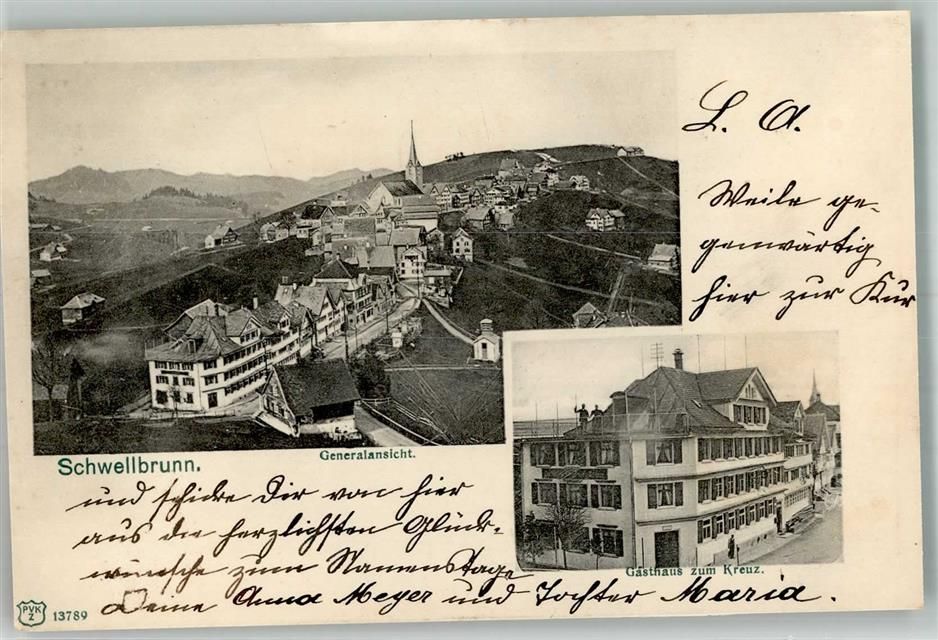 L. A.
Weile ge-
genwärtig
hier zur Kur
Schwellbrunn.
Generalansicht.
und schicke Dir von hier
aus die herzlichsten Glück-
wünsche zum Namenstage
Deine Anna Meyer und Tochter Maria.
Gasthaus zum Kreuz.
PVK
Z
13789